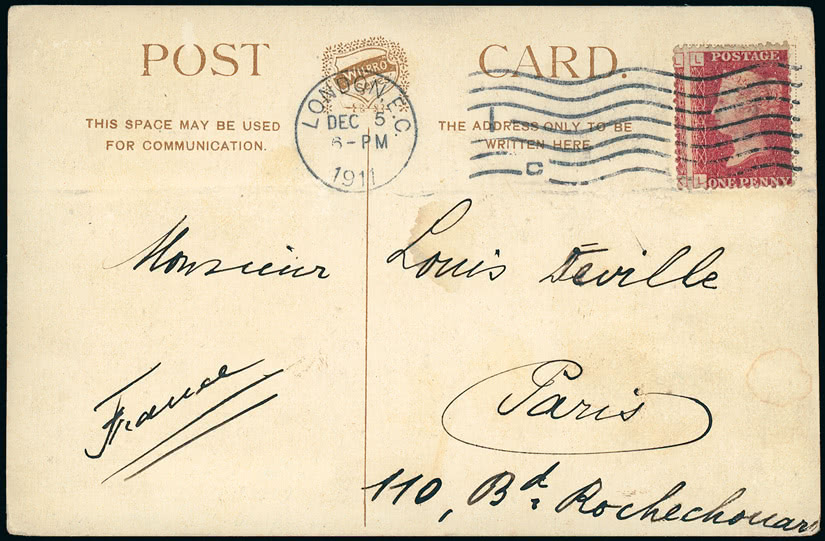 POST CARD.
WILBRO
THIS SPACE MAY BE USED
FOR COMMUNICATION.
THE ADDRESS ONLY TO BE
WRITTEN HERE.
LONDON.E.C.
DEC 5
6-PM
1911
C
L L
POSTAGE
L
ONE PENNY
Monsieur Louis Deville
France
Paris
110, Bd. Rochechouart